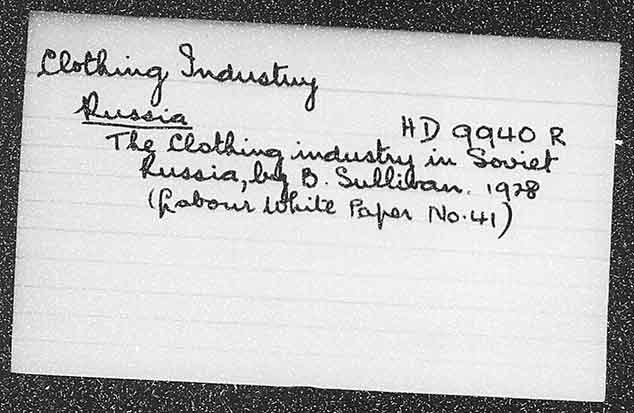 Clothing Industry
Russia
HD 9940 R
The Clothing industry in Soviet
Russia, by B. Sullivan. 1928
(Labour White Paper No. 41)